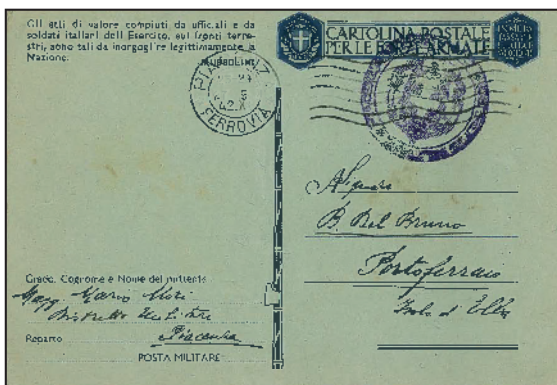 Gli atti di valore compiuti da ufficiali e da
soldati italiani dell Esercito, sui fronti terre-
stri, sono tali da inorgoglire legittimamente la
Nazione.
Mussolini
CARTOLINA POSTALE
PER LE FORZE ARMATE
PIACENZA
FERROVIA
Signore
B. Del Bruno
Portoferraio
Isola d'Elba
Grado, Cognome e Nome del mittente
Magg Mario Mori
Distretto Militare
Reparto Piacenza
POSTA MILITARE